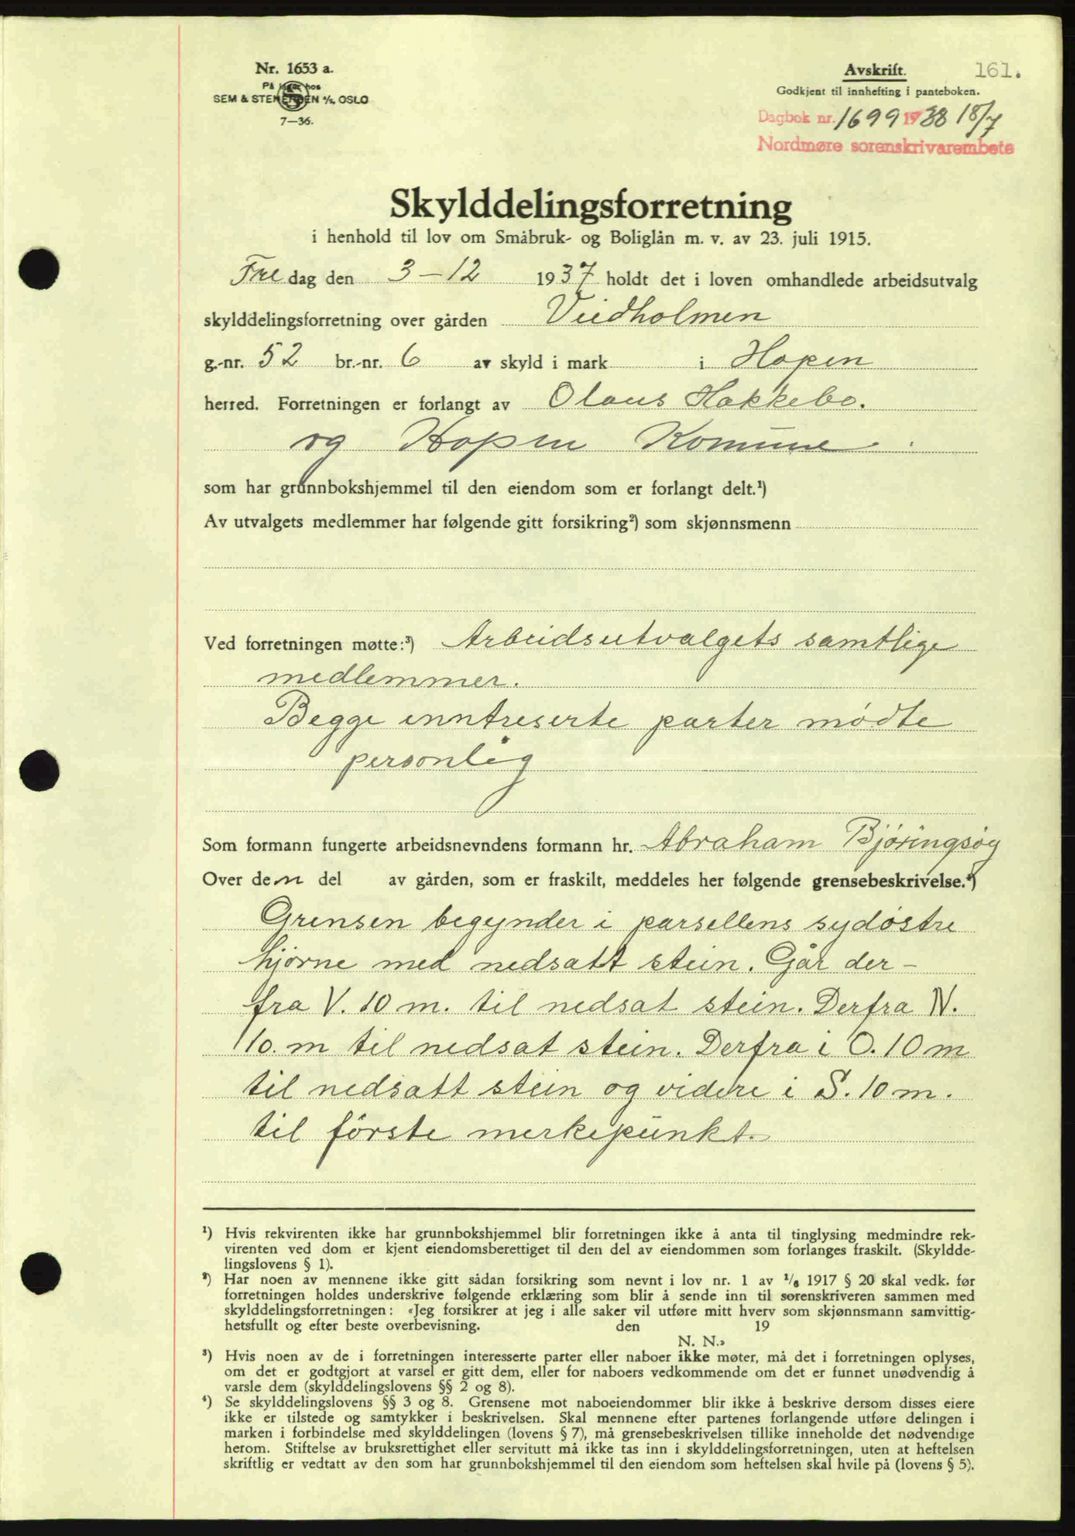 Nr. 1653 a.
På lager hos
SEM & STENERSEN A/S, OSLO
7—36.
Avskrift. 161.
Godkjent til innhefting i panteboken.
Dagbok nr. 1699 1938 18/7
Nordmøre sorenskrivarembete
Skylddelingsforretning
i henhold til lov om Småbruk- og Boliglån m. v. av 23. juli 1915.
Fredag den 3-12 1937 holdt det i loven omhandlede arbeidsutvalg
skylddelingsforretning over gården Veidholmen
g.-nr. 52 br.-nr. 6 av skyld i mark i Hopen
herred. Forretningen er forlangt av Olaus Hakkebo.
og Hopen Komune.
som har grunnbokshjemmel til den eiendom som er forlangt delt.¹)
Av utvalgets medlemmer har følgende gitt forsikring²) som skjønnsmenn
Ved forretningen møtte:³) Arbeidsutvalgets samtlige
medlemmer.
Begge inntreserte parter mødte
personlig
Som formann fungerte arbeidsnevndens formann hr. Abraham Bjøringsøy
Over den del av gården, som er fraskilt, meddeles her følgende grensebeskrivelse.⁴)
Grensen begynder i parsellens sydøstre
hjørne med nedsatt stein. Går der-
fra V. 10 m. til nedsat stein. Derfra N.
10. m til nedsat stein. Derfra i O. 10 m
til nedsatt stein og videre i S. 10 m.
til første merkepunkt.
¹) Hvis rekvirenten ikke har grunnbokshjemmel blir forretningen ikke å anta til tinglysing medmindre rek-
virenten ved dom er kjent eiendomsberettiget til den del av eiendommen som forlanges fraskilt. (Skyldde-
lingslovens § 1).
²) Har noen av mennene ikke gitt sådan forsikring som nevnt i lov nr. 1 av ¹/₆ 1917 § 20 skal vedk. før
forretningen holdes underskrive følgende erklæring som blir å sende inn til sorenskriveren sammen med
skylddelingsforretningen: «Jeg forsikrer at jeg i alle saker vil utføre mitt hverv som skjønnsmann samvittig-
hetsfullt og efter beste overbevisning. den 19
N. N.»
³) Hvis noen av de i forretningen interesserte parter eller naboer ikke møter, må det i forretningen oplyses,
om det er godtgjort at varsel er gitt dem, eller for naboers vedkommende om det er funnet unødvendig å
varsle dem (skylddelingslovens §§ 2 og 8).
⁴) Se skylddelingslovens §§ 3 og 8. Grensene mot naboeiendommer blir ikke å beskrive dersom disses eiere
ikke er tilstede og samtykker i beskrivelsen. Skal mennene efter partenes forlangende utføre delingen i
marken i forbindelse med skylddelingen (lovens § 7), må grensebeskrivelsen tillike inneholde det nødvendige
herom. Stiftelse av bruksrettighet eller servitutt må ikke tas inn i skylddelingsforretningen, uten at heftelsen
skriftlig er vedtatt av den som har grunnbokshjemmel til den eiendom som heftelsen skal hvile på (lovens § 5).